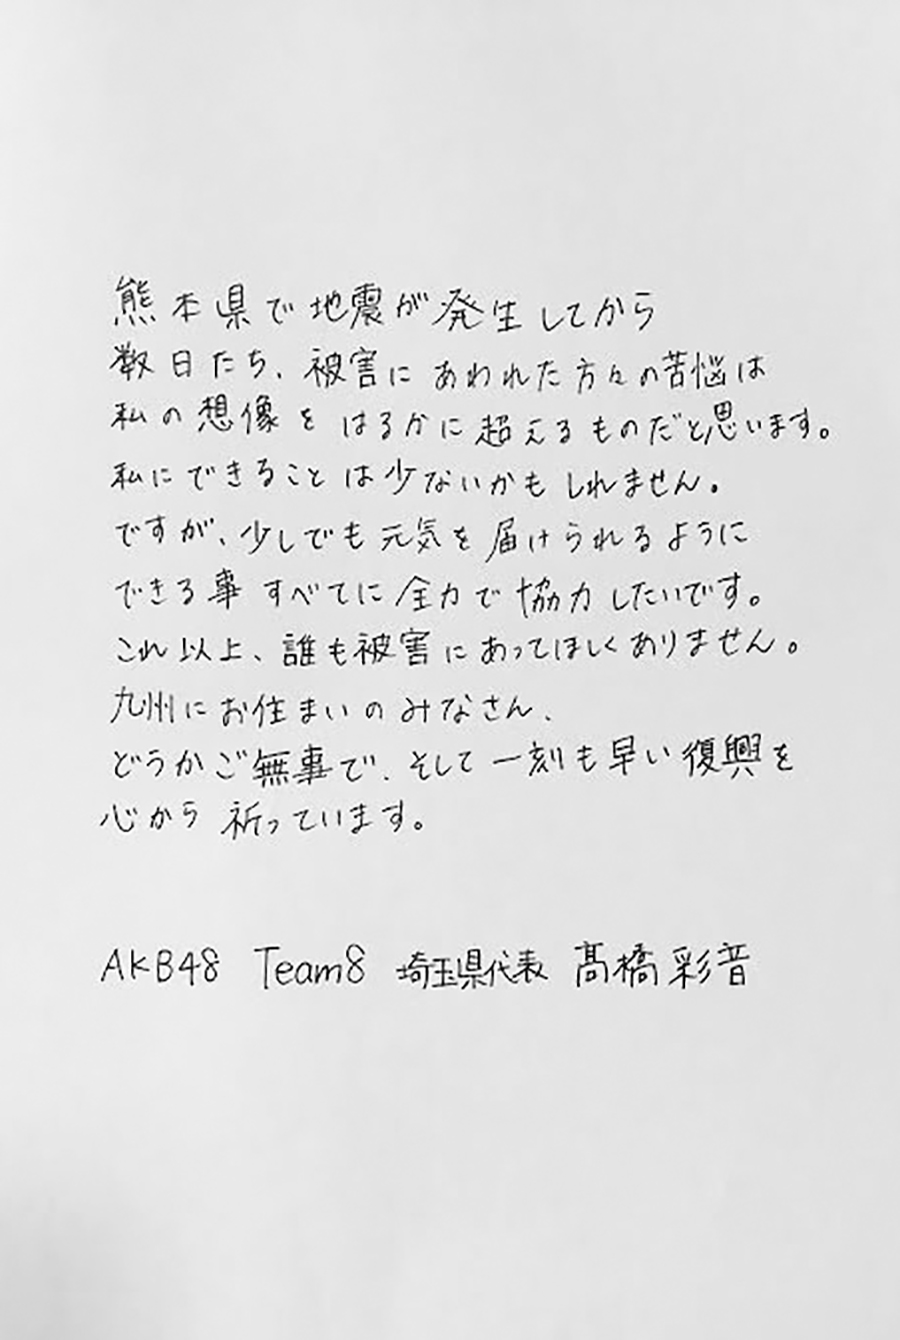 熊本県で地震が発生してから
数日たち、被害にあわれた方々の苦悩は
私の想像をはるかに超えるものだと思います。
私にできることは少ないかもしれません。
ですが、少しでも元気を届けられるように
できる事すべてに全力で協力したいです。
これ以上、誰も被害にあってほしくありません。
九州にお住まいのみなさん、
どうかご無事で、そして一刻も早い復興を
心から祈っています。
AKB48 Team8 埼玉県代表 髙橋彩音